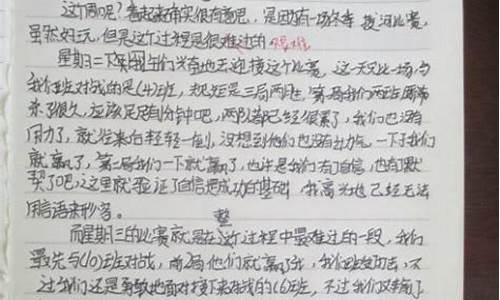 这个周呢?看起来确实很有意思,是因为有一场冬季拔河比赛,
虽然好玩,但是这个过程是很难过的 艰难
星期二下午同学们兴奋地去迎接这个比赛,这一天又比一场,与
我们班对战的是(4)班,规矩是三局两胜,第一局我们两班
了很久,应该足足有1分钟吧,两队都已经很累了,我们也没有
用力了,就 轻轻一 ,没想到他们也没有力气,一下子我们
就赢了,第二局我们一下就赢了,也许是我们有了自信,也有了默
契了吧,这里就验证了自信是成功的基础,我高兴地已经无法
用言语来形容。 整
而星期三的比赛就是在这个过程中最难过的一段,我们
最先与(10)班对战,前2局他们就赢了我 ,不
过我们还是勇敢地面对接下来对战的(6)班,不过我们又输了